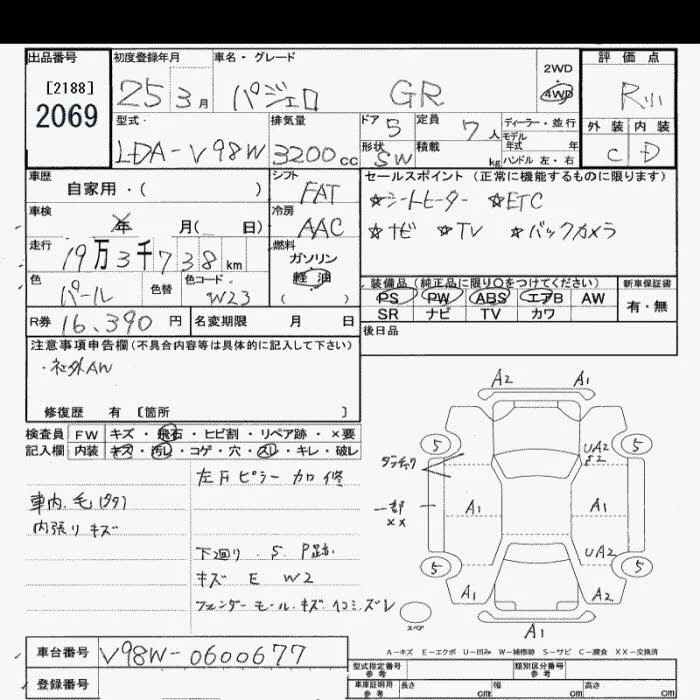 出品番号 初度登録年月 車名・グレード 2WD 4WD 評価点
[2188]
2069
25 3月 パジェロ GR R小
型式 排気量 ドア 5 定員 7人 ディーラー・並行 外装 内装
LDA-V98W 3200cc 形状 SW 積載 kg モデル年式 年 ハンドル 左・右 C D
車歴 自家用・( ) シフト FAT セールスポイント (正常に機能するものに限ります)
車検 年 月( 日) 冷房 AAC ☆シートヒーター ☆ETC
☆ナビ ☆TV ☆バックカメラ
走行 19万3千738km 燃料 ガソリン 軽油 ( )
色 パール 色替 色コード W23
装備品 (純正品に限り○をつけてください) 新車保証書
PS PW ABS エアB AW 有・無
SR ナビ TV カワ
R券 16,390円 名変期限 月 日 後日品
注意事項申告欄(不具合内容等は具体的に記入して下さい)
・社外AW
修復歴 有 [箇所 ]
検査員 FW キズ・飛石・ヒビ割・リペア跡・×要
記入欄 内装 キズ・汚レ・コゲ・穴・スレ・キレ・破レ
左Fピラー カロ修
車内 毛(タタ)
内張りキズ
下廻り S P跡
キズ E W2
フェンダーモールキズ ズレ
A2 A1
5 5
UA2
一部 A1 A1
××
UA2
5 5
A1 A2
スペア
A1
A-キズ E-エクボ U-凹み W-補修跡 S-サビ C-腐食 XX-交換済
車台番号 V98W-0600677
登録番号
型式指定番号 参考 類別区分番号 参考
車庫証明用 参考 長さ cm 幅 cm 高さ cm